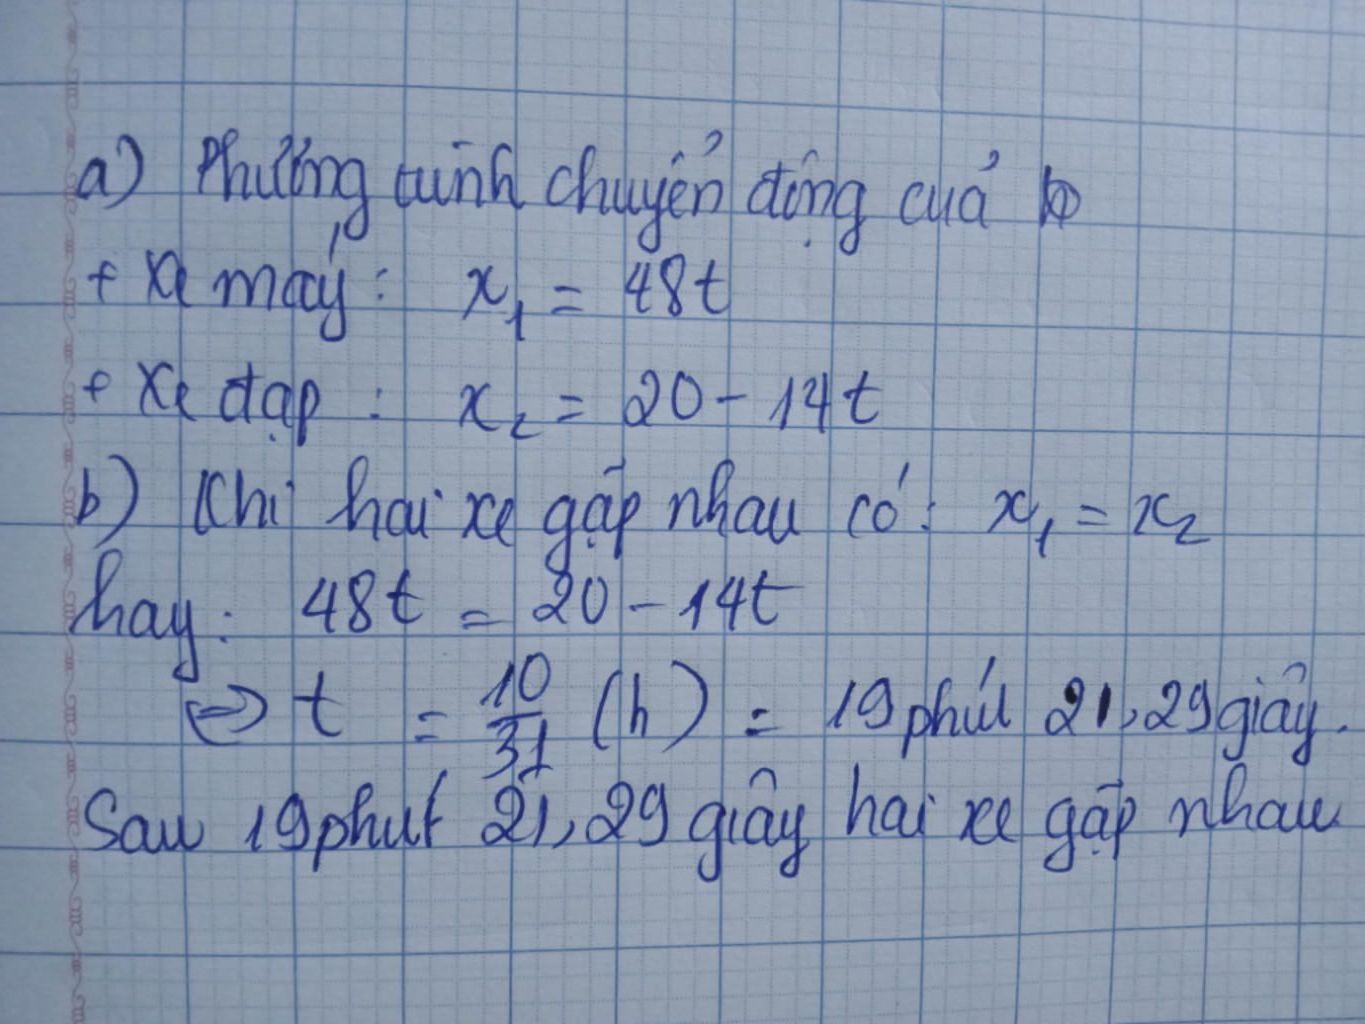 a) Phương trình chuyển động của
+ Xe máy : x₁ = 48t
+ Xe đạp : x₂ = 20 - 14t
b) Khi hai xe gặp nhau có : x₁ = x₂
hay : 48t = 20 - 14t
⇔ t = 10/31 (h) = 19 phút 21,29 giây.
Sau 19 phút 21,29 giây hai xe gặp nhau